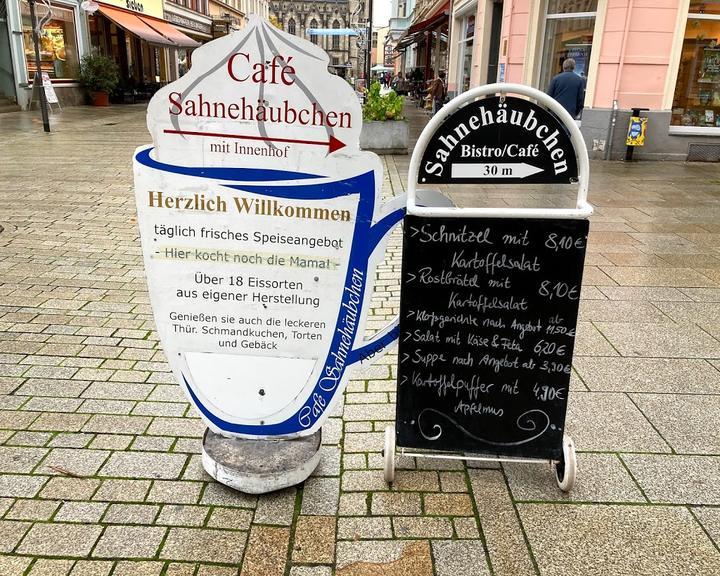 Café
Sahnehäubchen
mit Innenhof
Herzlich Willkommen
täglich frisches Speiseangebot
- Hier kocht noch die Mama! -
Über 18 Eissorten
aus eigener Herstellung
Genießen sie auch die leckeren
Thür. Schmandkuchen, Torten
und Gebäck
Café Sahnehäubchen
Sahnehäubchen
Bistro/Café
30 m
>Schnitzel mit 8,10€
Kartoffelsalat
>Rostbrätel mit 8,10€
Kartoffelsalat
>Klopsgerichte nach Angebot ab 11,50€
>Salat mit Käse & Feta 6,20€
>Suppe nach Angebot ab 3,90€
>Kartoffelpuffer mit 4,70€
Apfelmus